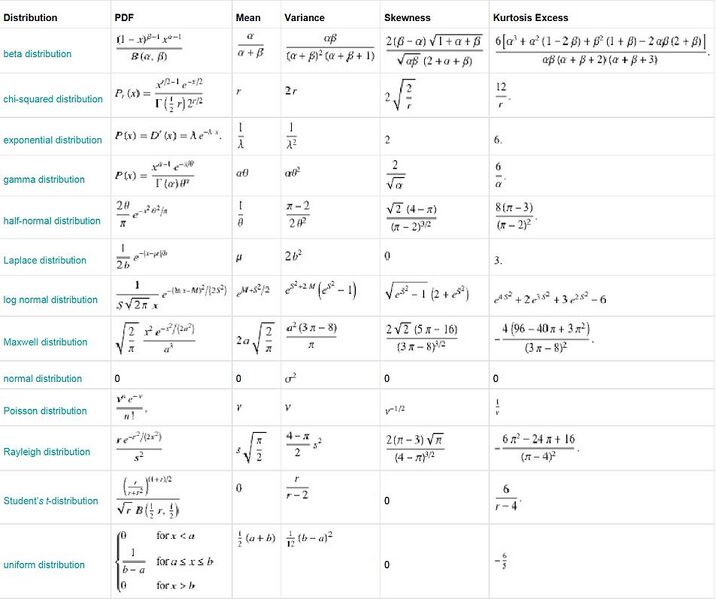 Distribution PDF Mean Variance Skewness Kurtosis Excess
beta distribution (1 − x)^(β−1) x^(α−1) / B(α, β) α/(α + β) αβ/((α + β)² (α + β + 1)) 2(β − α) √(1 + α + β) / (√(αβ) (2 + α + β)) 6[α³ + α² (1 − 2β) + β² (1 + β) − 2αβ(2 + β)] / (αβ(α + β + 2)(α + β + 3))
chi-squared distribution P_r(x) = x^(r/2−1) e^(−x/2) / (Γ(½ r) 2^(r/2)) r 2r 2√(2/r) 12/r.
exponential distribution P(x) = D′(x) = λ e^(−λx). 1/λ 1/λ² 2 6.
gamma distribution P(x) = x^(α−1) e^(−x/θ) / (Γ(α) θ^α) αθ αθ² 2/√α 6/α.
half-normal distribution 2θ/π e^(−x²θ²/π) 1/θ (π − 2)/(2θ²) √2 (4 − π)/(π − 2)^(3/2) 8(π − 3)/(π − 2)².
Laplace distribution 1/(2b) e^(−|x−μ|/b) μ 2b² 0 3.
log normal distribution 1/(S√(2π) x) e^(−(ln x−M)²/(2S²)) e^(M+S²/2) e^(S²+2M) (e^(S²) − 1) √(e^(S²) − 1) (2 + e^(S²)) e^(4S²) + 2e^(3S²) + 3e^(2S²) − 6
Maxwell distribution √(2/π) x² e^(−x²/(2a²)) / a³ 2a√(2/π) a²(3π − 8)/π 2√2 (5π − 16)/(3π − 8)^(3/2) −4(96 − 40π + 3π²)/(3π − 8)².
normal distribution 0 0 σ² 0 0
Poisson distribution ν^n e^(−ν)/n!. ν ν ν^(−1/2) 1/ν
Rayleigh distribution r e^(−r²/(2s²)) / s² s√(π/2) (4 − π)/2 s² 2(π − 3)√π/(4 − π)^(3/2) −(6π² − 24π + 16)/(π − 4)².
Student's t-distribution (r/(r+t²))^((1+r)/2) / (√r B(½ r, ½)) 0 r/(r − 2) 0 6/(r − 4).
uniform distribution {0 for x < a 1/(b − a) for a ≤ x ≤ b 0 for x > b ½ (a + b) 1/12 (b − a)² 0 −6/5